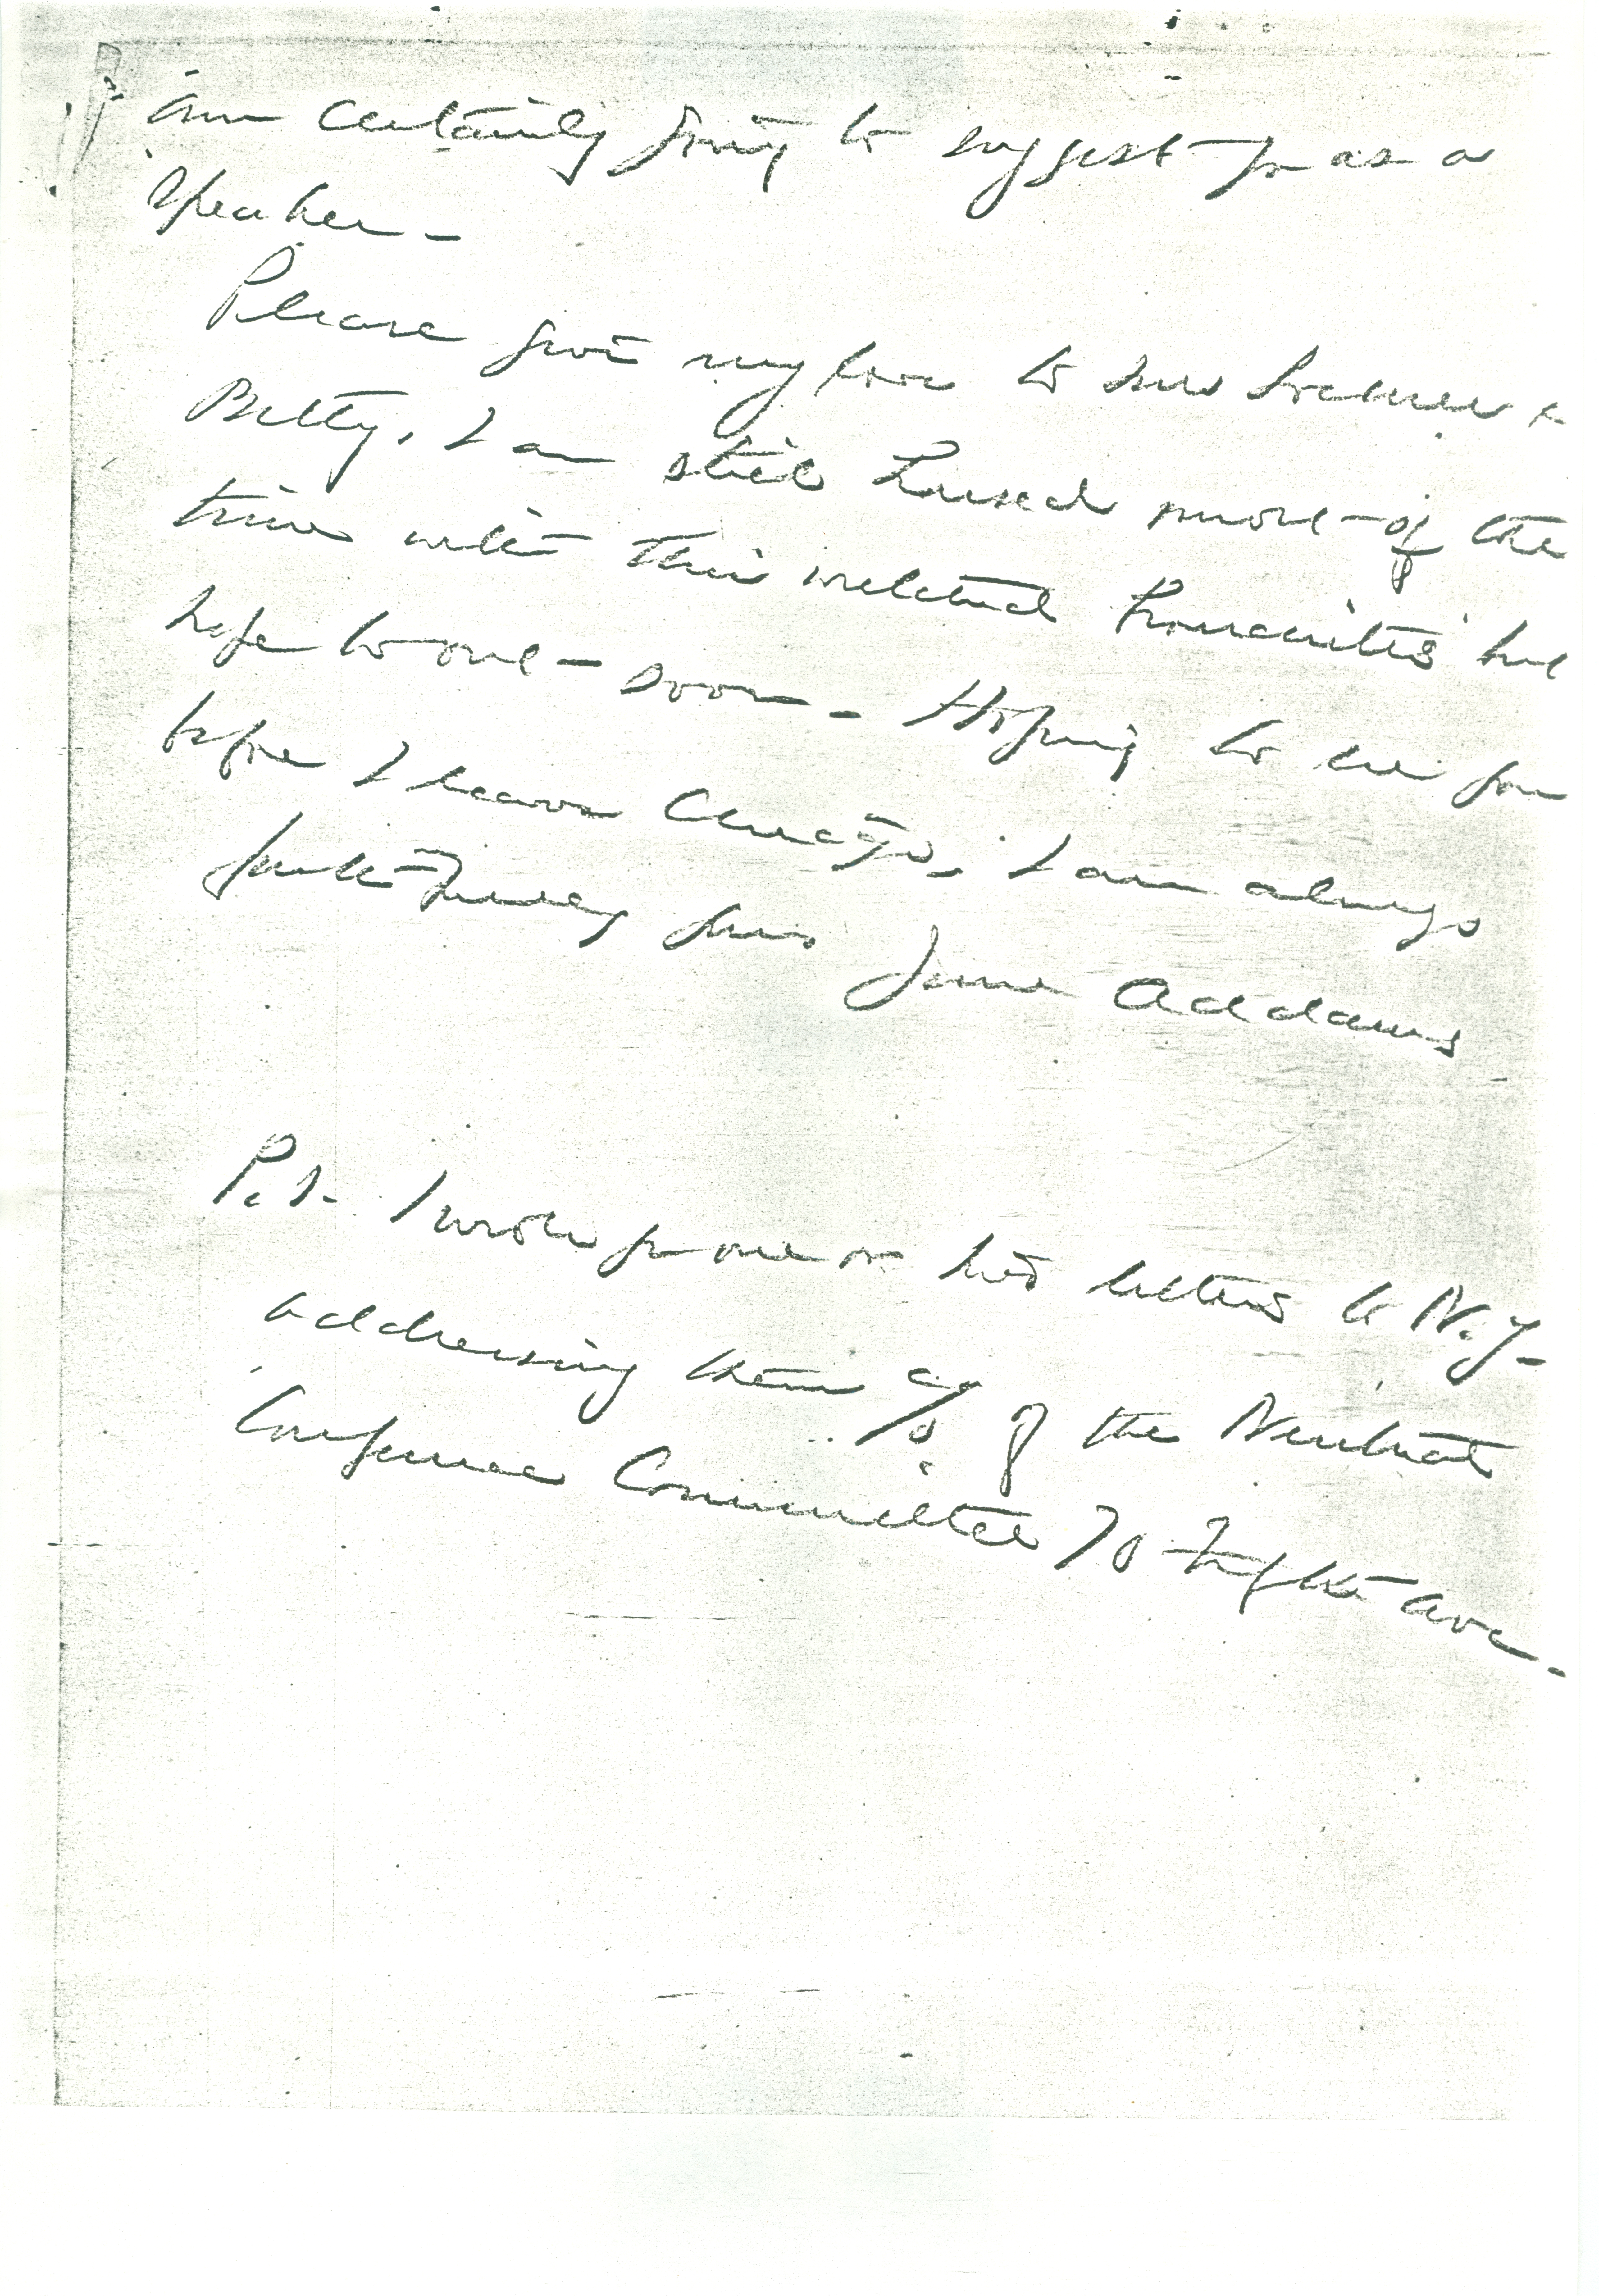 am certainly going to suggest you as a
speaker -
Please give my love to Mrs Lochner &
Betty. I am still housed most of the
time with this wretched Bronchitis but
hope to out - soon - Hoping to see you
before I leave Chicago, I am always
faithfully yours Jane Addams
P.S. I wrote you one or two letters to N.Y-
addressing them c/o of the Neutral
Conference Committee 70 Fifth Ave.